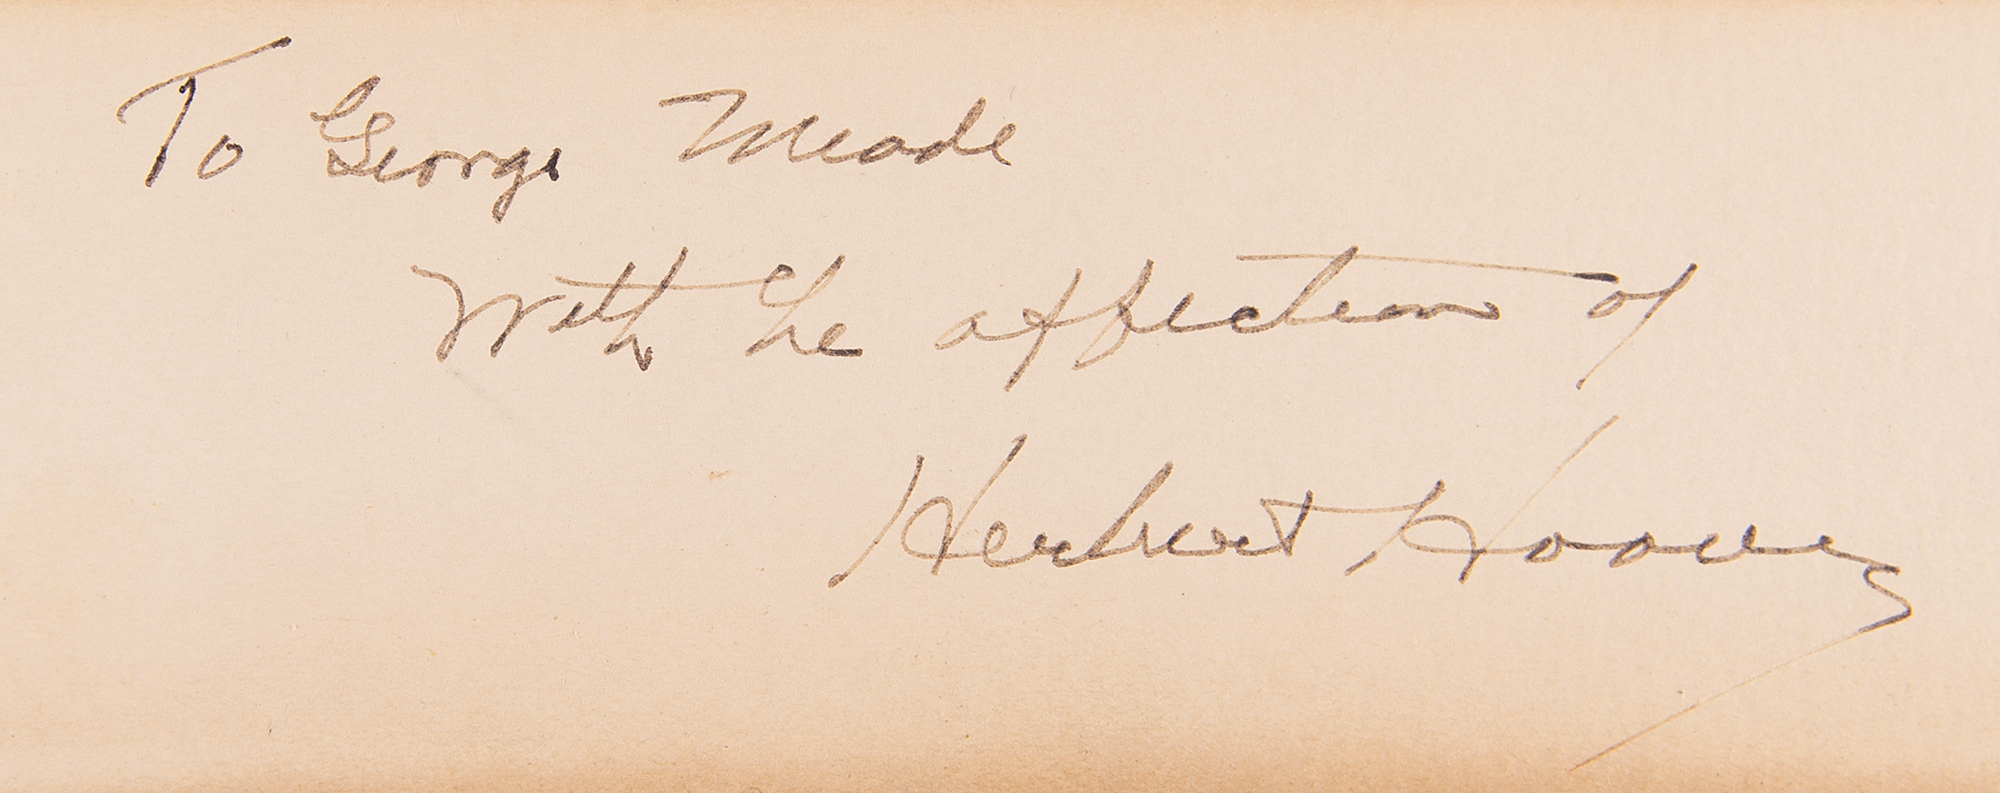 To George Meade
With the affection of
Herbert Hoover